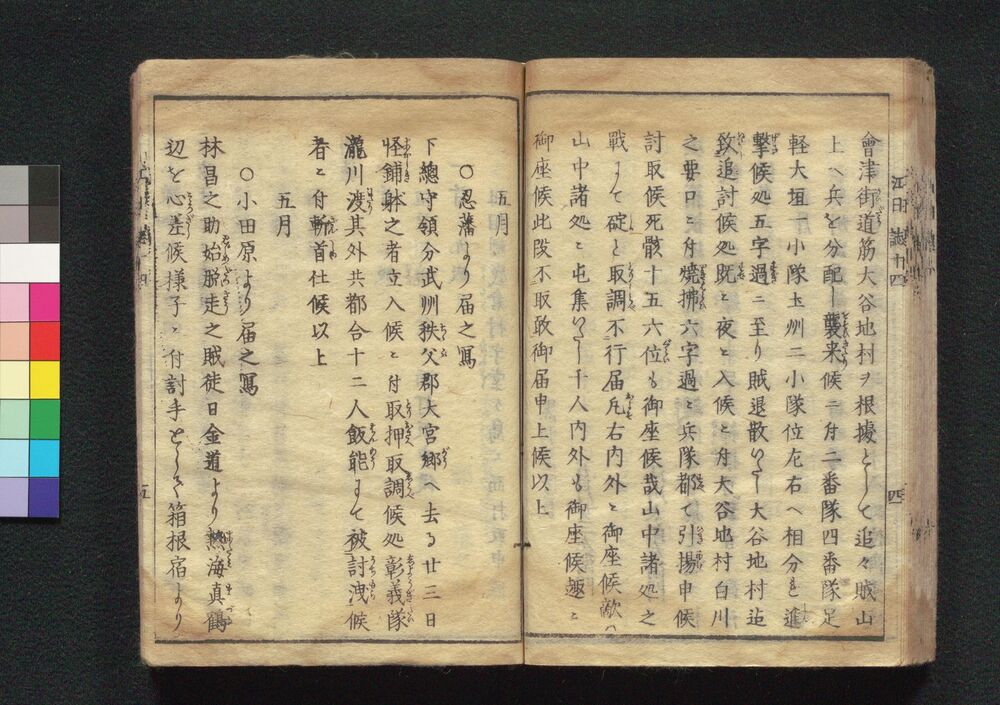 會津街道筋大谷地村ヲ根據として追々賊山
上へ兵を分配し襲来候ニ付二番隊四番隊足
軽大垣一小隊玉州二小隊位左右へ相分を進
撃候処五字過ニ至り賊退散いたし大谷地村迄
致追討候処既ニ夜ニ入候ニ付大谷地村白川
之要口ニ付焼拂六字過ニ兵隊都て引揚申候
討取候死骸十五六位も御座候哉山中諸処之
戦ニて碇と取調不行届凡右内外ニ御座候敵ハ
山中諸処ニ屯集いたし千人内外も御座候趣ニ
御座候此段不取敢御届申上候以上
五月
○忍藩より届之寫
下總守領分武州秩父郡大宮郷へ去る廿三日
怪鋪躰之者立入候ニ付取押取調候処彰義隊
瀧川渡其外共都合十二人飯能ニて被討洩候
者ニ付斬首仕候以上
五月
○小田原より届之寫
林昌之助始脱走之賊徒日金道より熱海真鶴
辺を心差候様子ニ付討手として箱根宿より
四
五